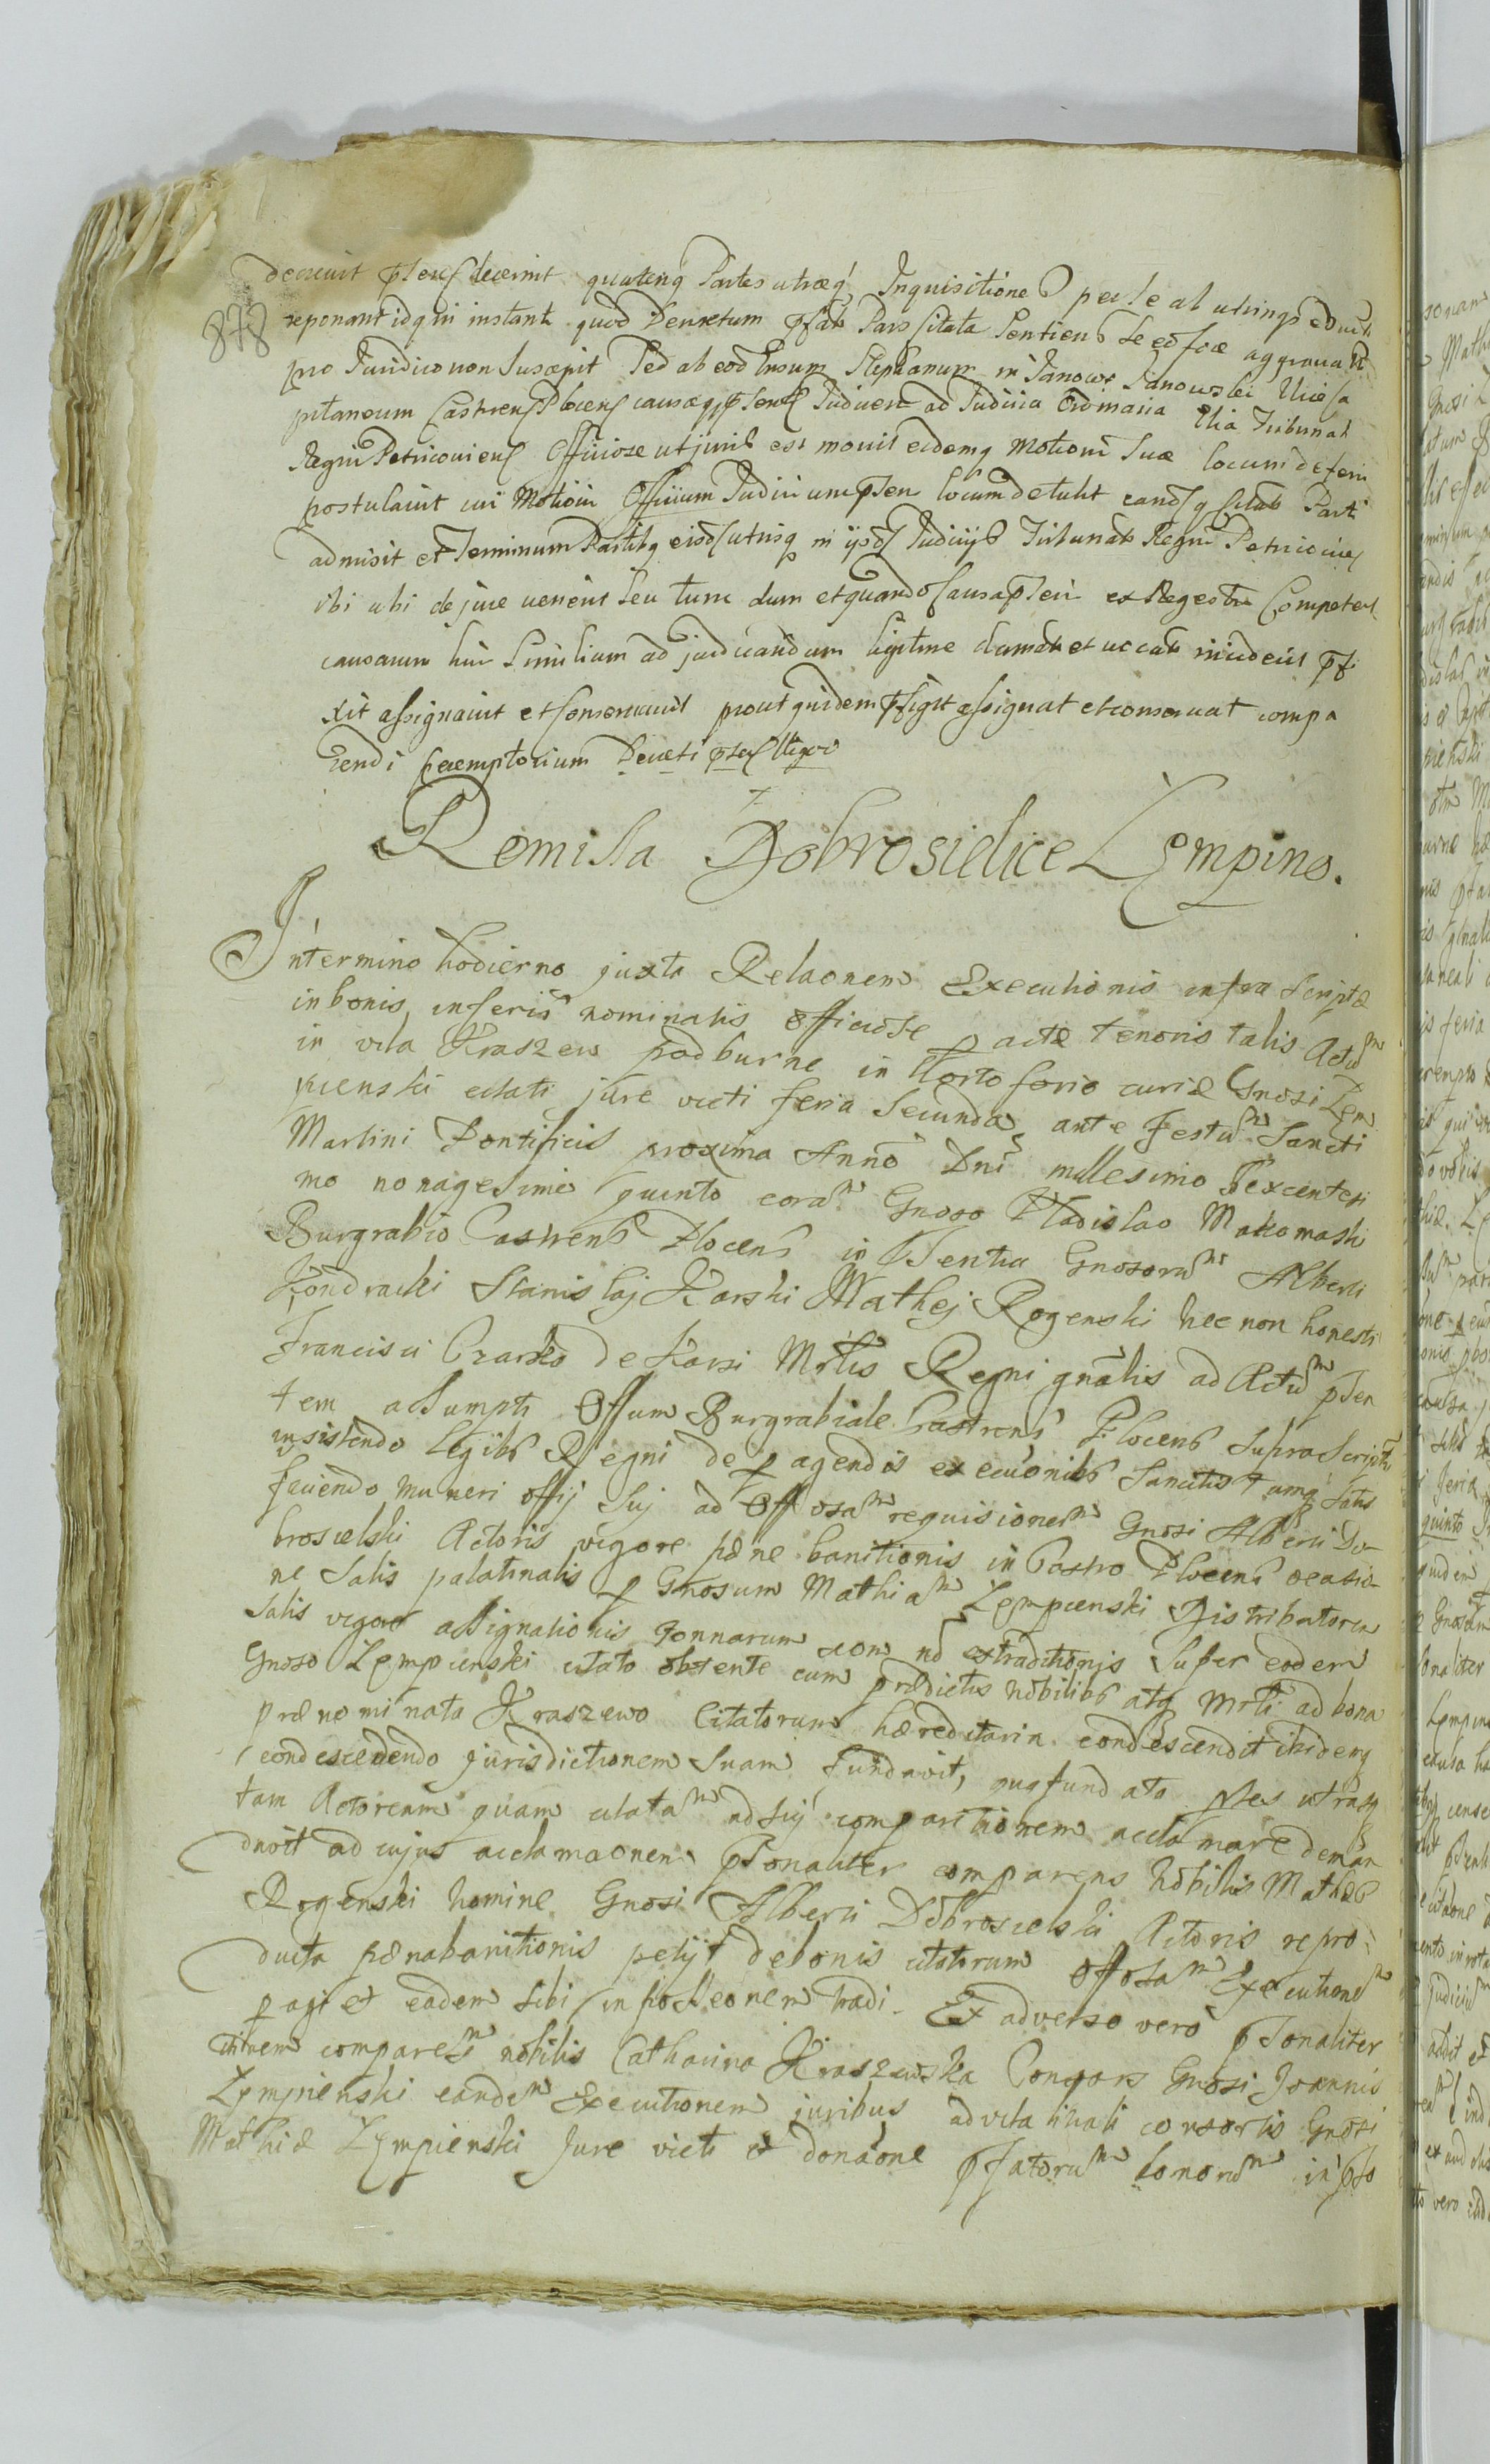 decreuit pñs decernit quatenq Partes utræq Inquisitiones per se ab utrinqs educt
878
reponant idq in instanti quod Decretum pfat Pars Citata Sentiens se eo fore aggrauat
pro Juridico non Suscepit Sed ab eod Gnsum Stephanum in Janowo Janowski Vicesa
pitaneum Castrens Plocens causæq pñsens Judicem ad Judicia Ordinaria Glia Tribunal
Regni Petricouiens Officiose ut juris est mouit eidemq Motioni Suæ locum deferri
postulauit cui Motioni Officium Judicium pñsen locum detulit eandq Citat Parti
admisit et Terminum Partibq eisd utrisq in ijsd Judicijs Tribunal Regni Petricoviens
ibi ubi de jure uenerit seu tunc dum et quando Causa pñsen ex Regestro Competen
causarum huic Similium ad judicandum legitime clamat et uocat inciderit pfi
xit assignauit et Conseruauit prout quidem pfigit assignat et conseruat compa
rendi peremptorium Decreti pñs uigore
Remissa Dobrosielice Lempino.
In termino hodierno juxta Relaonem Executionis infra Scriptæ
in bonis inferis nominatis officiose p actæ tenoris talis Actum
in villa Kraszewo podburne in Horto forio curiæ Gnosi Lem
pienski citati jure victi feria Secunda ante festum Sancti
Martini Pontificis proxima Anno Dni millesimo Sexcentesi
mo nonagesimo quinto coram Gnoso Wladislao Makomaski
Burgrabio Castrens Plocens in pSentia Gnosorum Alberti
Kondracki Stanislaj Karski Mathej Rogenski nec non honesti
Francisci Czarko de Karsi Mrlis Regni gnalis ad Actum pSen
tem assumpti Offum Burgrabiale Castrens Plocens supra Scriptu
insistendo legibs Regni de p agendis execuonibs Sancitis tamq Satis
faciendo muneri offij Suj ad Offosam requisionem Gnosi Alberti Do
brosielski Actoris vigore pænæ banitionis in Castro Plocens ocasio
ne Salis palatinalis p Gnosum Mathiam Lempienski Distributorem
Salis vigore assignationis Tonnarum non extraditionis Super eodem
Gnoso Lempienski citato obtente cum prædictis Nobilibs atq Mrli ad bona
prænominata Kraszewo Citatorum hæreditaria condescendit ibidemq
condescendendo jurisdictionem Suam fundavit, qua fundata ptes utrasq
tam Actoream quam citatam ad sui comparitionem acclamare deman
davit ad cujus acclamaonem pSonaliter comparens Nobilis Matheus
Rogenski Nomine Gnosi Alberti Dobrosielski Actoris repro
ducta pæna banitionis petijt de bonis citatorum offosam Executionem
p agi et eadem Sibi in possessionem tradi. Ex adverso vero pSonaliter
itidem comparens nobilis Catharina Kraszewska Consors Gnosi Joannis
Lempienski eandem Executionem juribus advitalitati consortis Gnosi
Mathiæ Lempienski Jure victi et donaone pfatorum bonorum in pSo